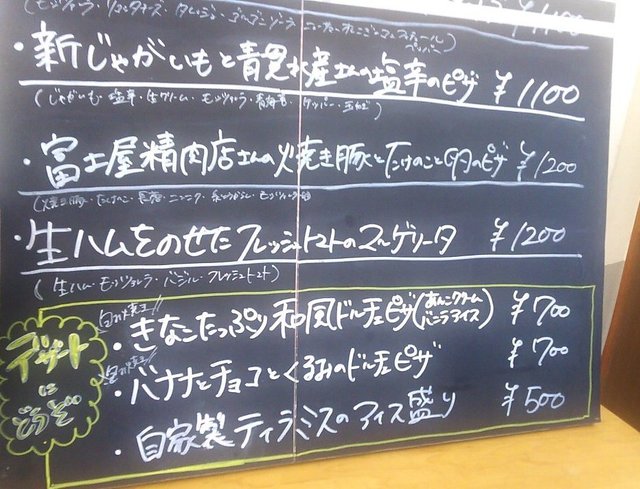 ¥1100
・新じゃがいもと青男水産さんの塩辛のピザ ¥1100
(じゃがいも・塩辛・生クリーム・モッツァレラ・青海苔・ケッパー・玉ねぎ)
・富士屋精肉店さんの焼き豚とたけのこのピザ ¥1200
・生ハムをのせたフレッシュトマトのマルゲリータ ¥1200
(生ハム・モッツァレラ・バジル・フレッシュトマト)
デザートにどうぞ
包み焼き!!
・きなこたっぷり和風ドルチェピザ(あんこクリームバニラアイス) ¥700
包み焼き!!
・バナナとチョコとくるみのドルチェピザ ¥700
・自家製ティラミスのアイス盛り ¥500